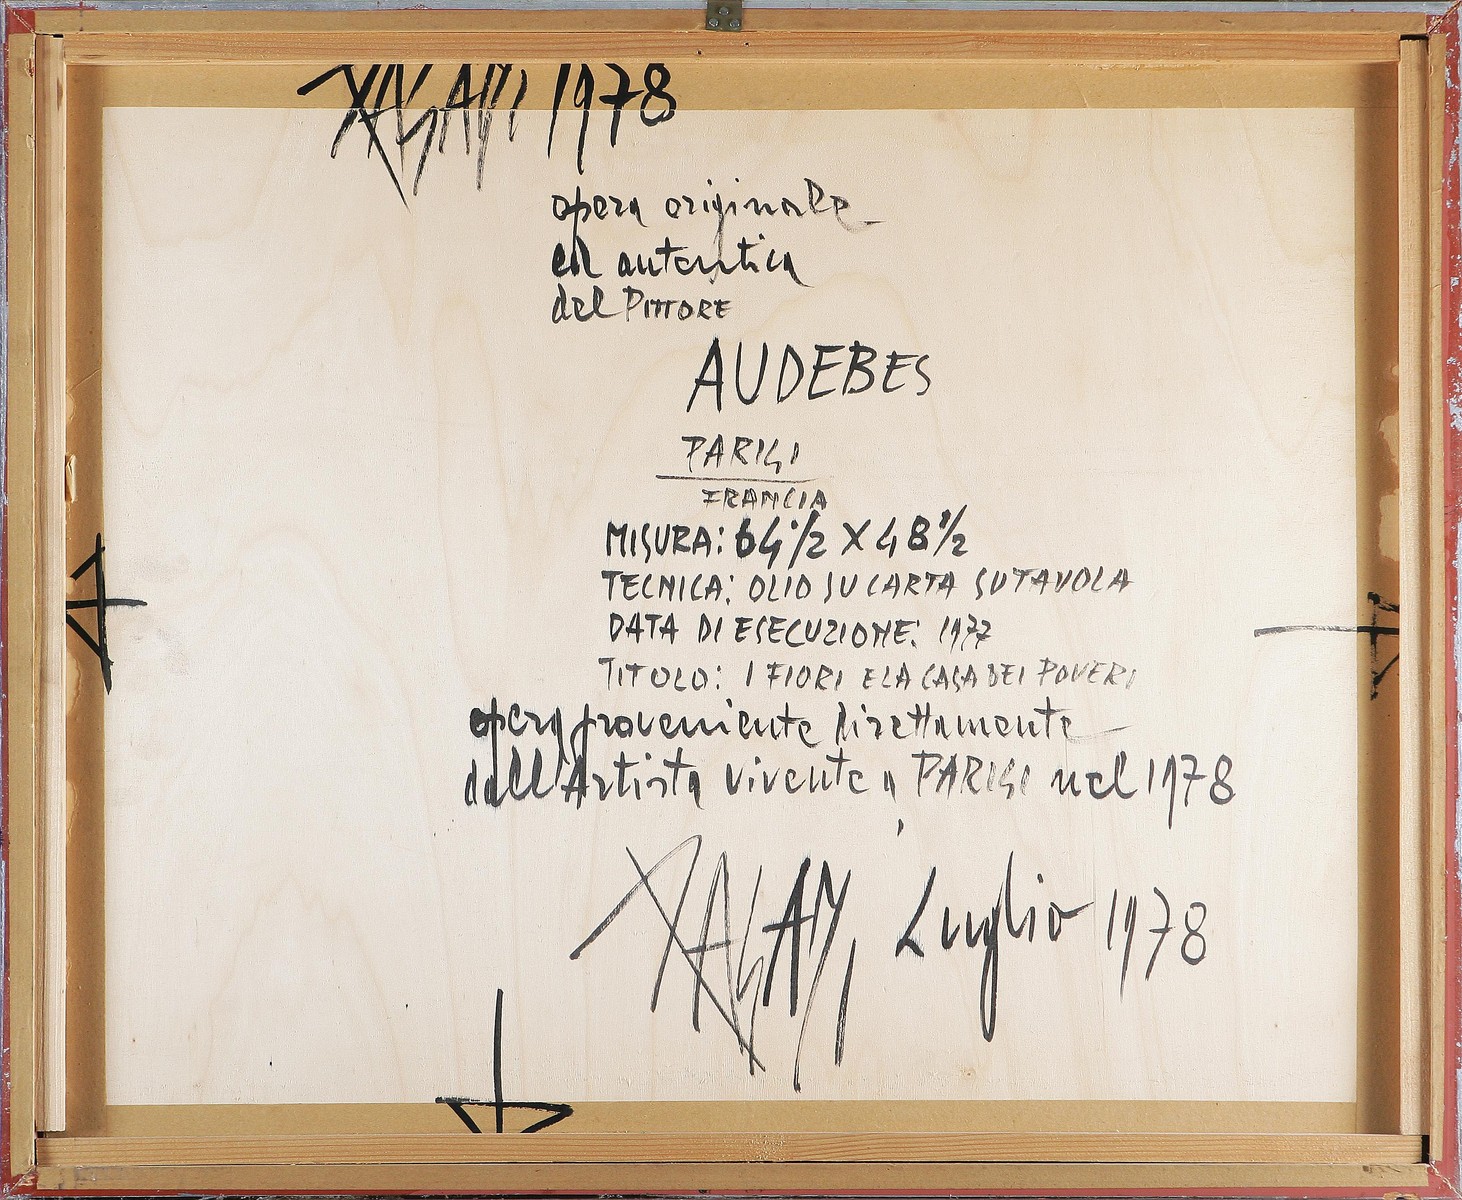 1978
opera originale
ed autentica
del PITTORE
AUDEBES
PARIGI
FRANCIA
MISURA: 64 1/2 X 48 1/2
TECNICA: OLIO SU CARTA SU TAVOLA
DATA DI ESECUZIONE: 1977
TITOLO: I FIORI E LA CASA DEI POVERI
opera proveniente direttamente
dall'Artista vivente a PARIGI nel 1978
Luglio 1978